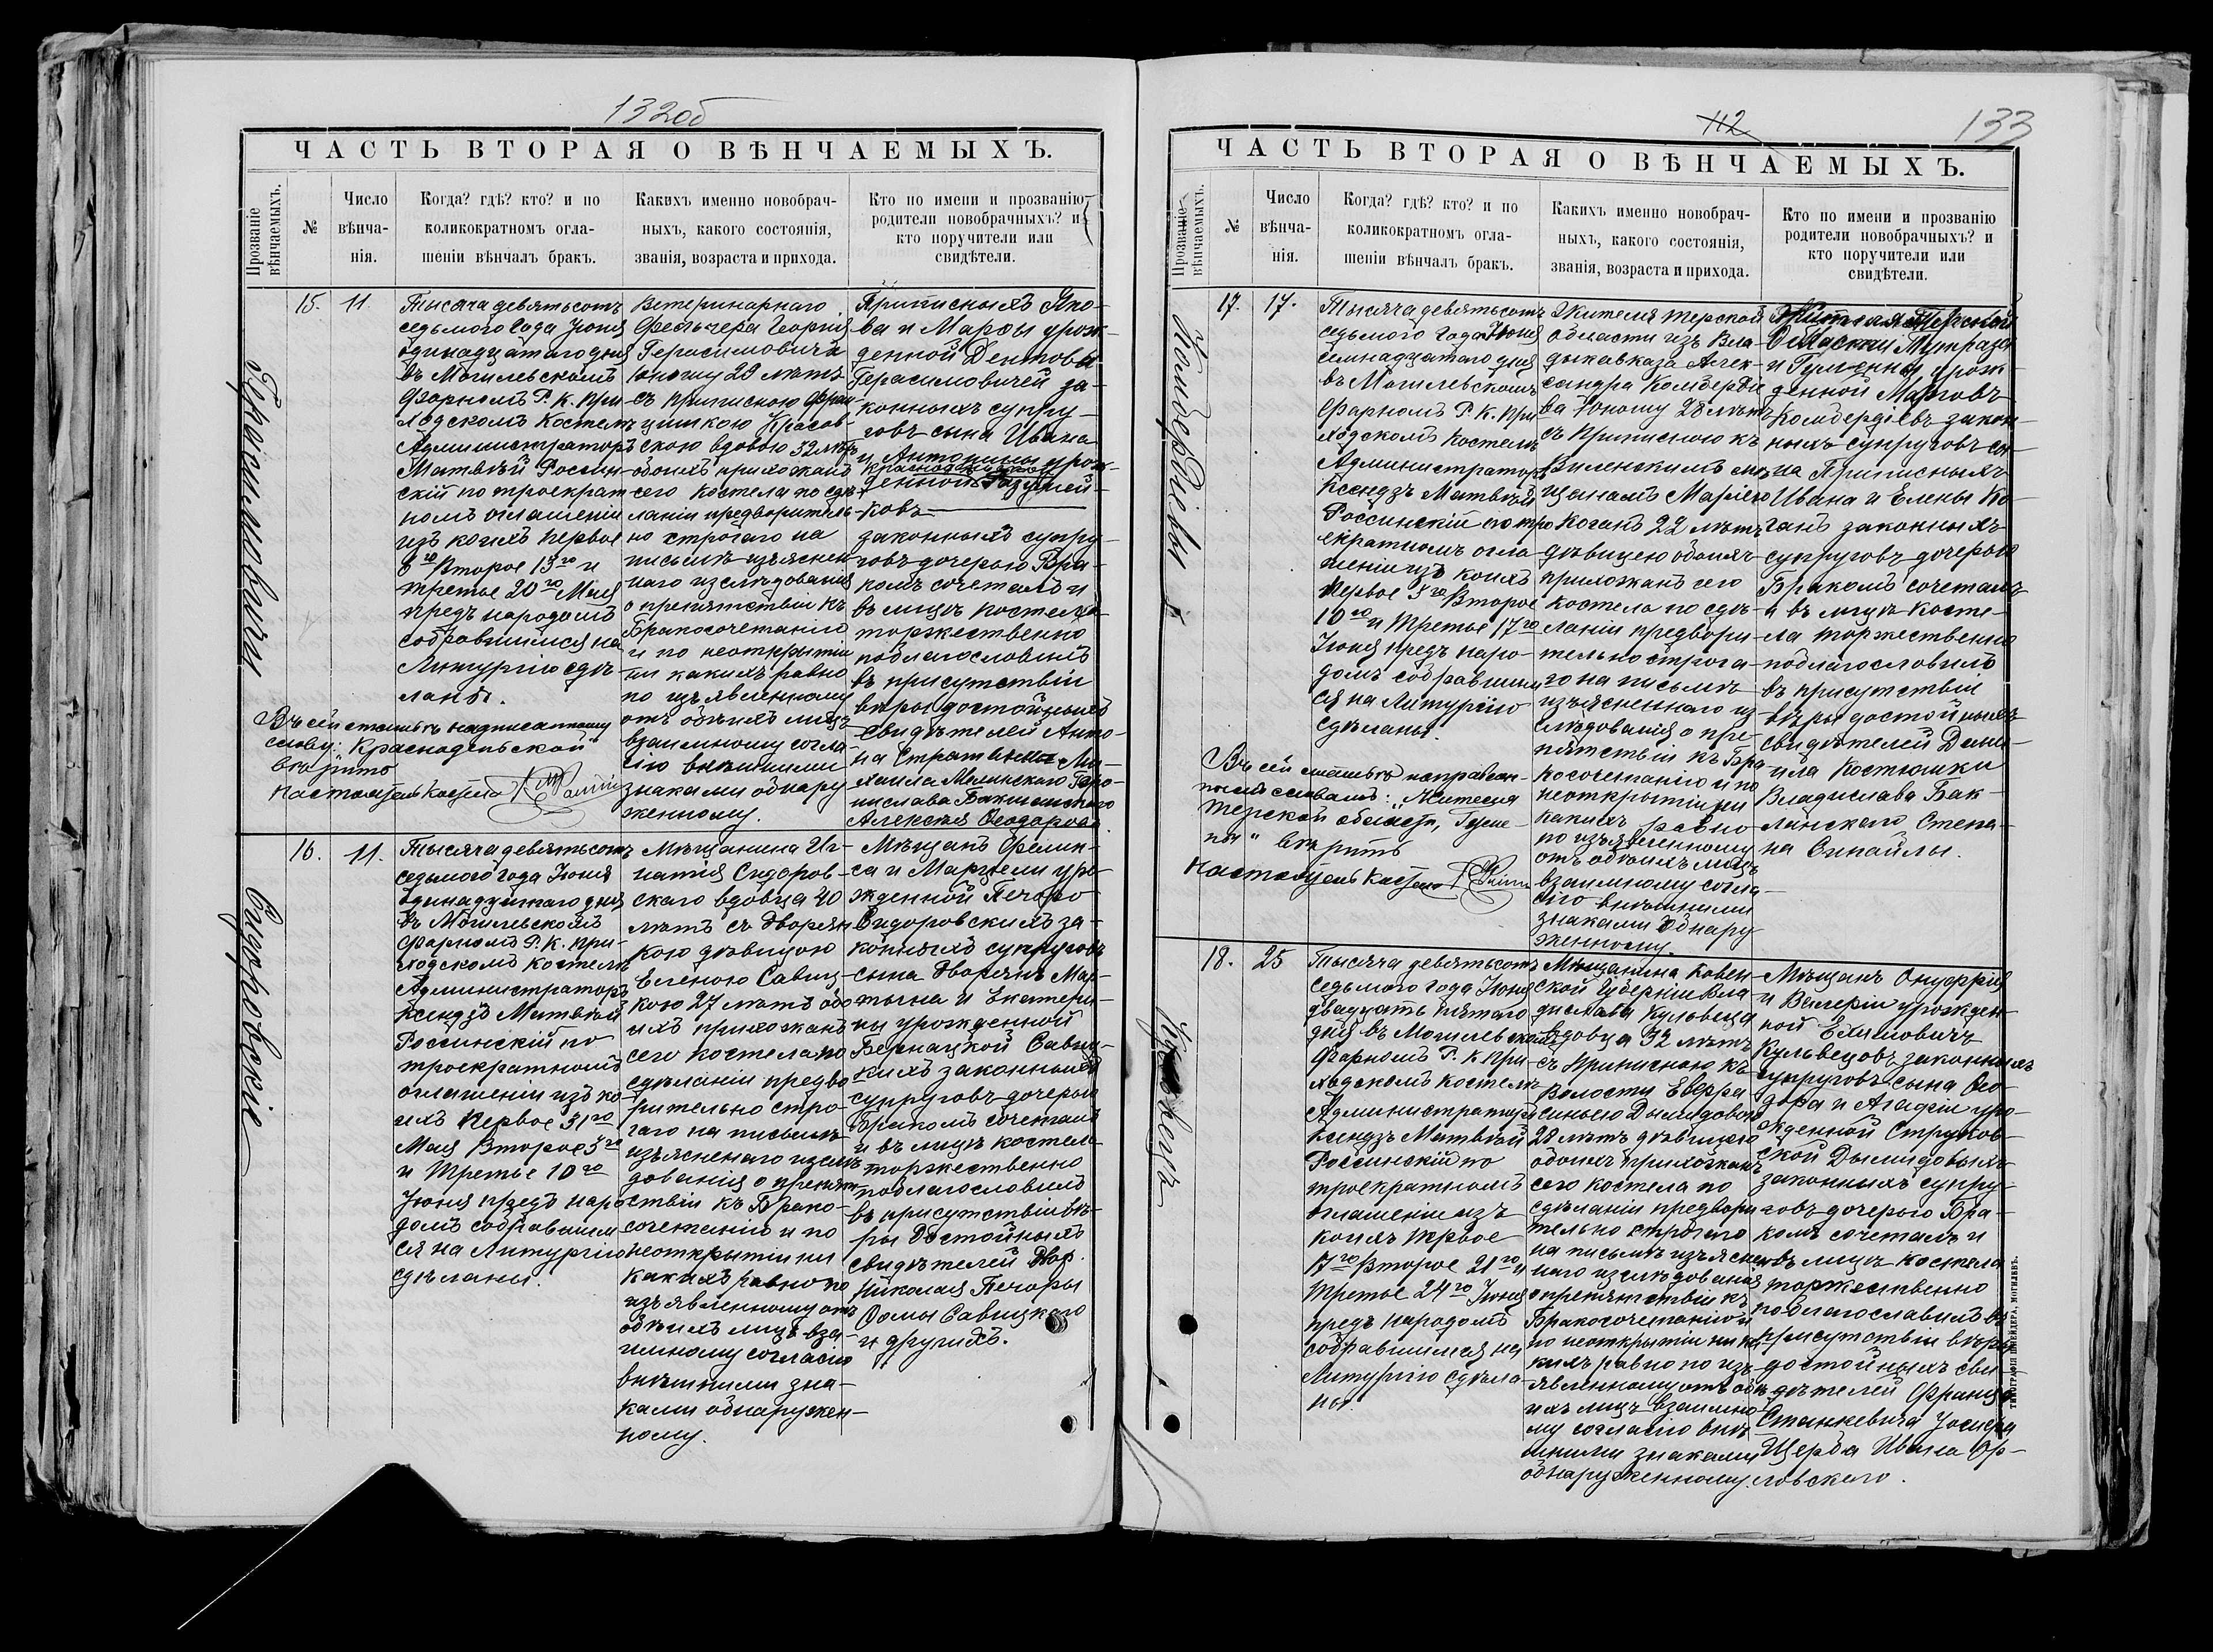 132об
ЧАСТЬ ВТОРАЯ О ВѢНЧАЕМЫХЪ.
Прозваніе
вѣнчаемыхъ.
№
Число
вѣнча-
нія.
Когда? гдѣ? кто? и по
коликократномъ огла-
шеніи вѣнчалъ бракъ.
Какихъ именно новобрач-
ныхъ, какого состоянія,
званія, возраста и прихода.
Кто по имени и прозванію
родители новобрачныхъ? и
кто поручители или
свидѣтели.
Герасимовичи
15.
11.
Тысяча девятьсотъ
седьмого года Іюня
одинадцатаго дня
въ Могилевскомъ
Фарномъ Р. К. при-
ходскомъ костелѣ
Администраторъ
Матвѣй Россин-
скій по троекрат
номъ оглашеніи
изъ коихъ первое
6го Второе 13го и
третье 20го Мая
предъ народомъ
собравшимся на
Литургію сдѣ-
ланы.
Ветеринарнаго
Фельчера Георгія
Герасимовича
юношу 29 лѣтъ
съ приписною Фран
цишкою Красов-
скою вдовою 32 лѣтъ
обоихъ прихожанъ
сего костела по сдѣ-
ланіи предворитель-
но строгаго на
письмѣ изъяснен
наго изслѣдованія
о препятствіи къ
Бракосочетанію
и по неоткрытіи
ни какихъ равно
по изъявленному
отъ обѣихъ лицъ
взаимному согла-
сію внѣшними
знаками обнару
женному.
Приписныхъ Яко-
ва и Марфы урож-
денной Дентовы
Герасимовичей за-
конныхъ супру-
говъ сына Ивана
и Антонины урож-
денной
ковъ
законныхъ супру-
говъ дочерью Бра-
комъ сочеталъ и
въ лицѣ костела
торжественно
поблагословилъ
въ присутствіи
вѣры достойныхъ
свидѣтелей Анто-
на Ми-
хаила
нислава
Алексѣя Ѳеодорова.
Въ сей статьѣ надписанному
слову: Краснодемьской
вѣрить
Настоятель костела
Сидоровскіе
16.
11.
Тысяча девятьсотъ
седьмого года Іюня
одинадцатаго дня
въ Могилевскомъ
Фарномъ Р. К. при-
ходскомъ костелѣ
Администраторъ
Ксендзъ Матвѣй
Россинскій по
троекратномъ
оглашеніи изъ ко-
ихъ Первое 31го
Мая Второе 3го
и Третье 10го
Іюня предъ наро
домъ собравшим
ся на Литургію
сдѣланы.
Мѣщанина Иг-
натія Сидоров-
скаго вдовца 40
лѣтъ съ Дворян
кою дѣвицою
Еленою Савиц-
кою 27 лѣтъ обо
ихъ прихожанъ
сего костела по
сдѣланіи предво
рительно стро-
гаго на письмѣ
изъясненаго изслѣ
дованія о препят
ствіи къ Брако-
сочетанію и по
неоткрытіи ни
какихъ равно по
изъявленному отъ
обѣихъ лицъ вза-
имному согласію
внѣшними зна-
ками обнаружен-
ному.
Мѣщанъ Феликс-
са и Марцели уро-
жденной Печоро
Сидоровскихъ за-
конныхъ супруговъ
сына Дворянъ Мар-
тына и Екатери-
ны урожденной
Бернацкой Савиц-
кихъ законныхъ
супруговъ дочерью
Бракомъ сочеталъ
и въ лицѣ костела
торжественно
поблагословилъ
въ присутствіи вѣ-
ры Достойныхъ
свидѣтелей Двор.
Николая Печоры
Ѳомы Савицкаго
и другихъ.
112
133
ЧАСТЬ ВТОРАЯ О ВѢНЧАЕМЫХЪ.
Прозваніе
вѣнчаемыхъ.
№
Число
вѣнча-
нія.
Когда? гдѣ? кто? и по
коликократномъ огла-
шеніи вѣнчалъ бракъ.
Какихъ именно новобрач-
ныхъ, какого состоянія,
званія, возраста и прихода.
Кто по имени и прозванію
родители новобрачныхъ? и
кто поручители или
свидѣтели.
Комбердіевы
17.
17.
Тысяча девятьсотъ
седьмого года Іюня
семнадцатаго дня
въ Могилевскомъ
Фарномъ Р. К. при
ходскомъ костелѣ
Администраторъ
Ксендзъ Матвѣй
Россинскій по тро
екратномъ огла
шеніи изъ коихъ
Первое 3го Второе
10го и Третье 17го
Іюня предъ наро-
домъ собравшим
ся на Литургію
сдѣланы.
Жителя Терской
области изъ Вла-
дыкавказа Алек-
сандра Комбердіе
ва юношу 28 лѣтъ
съ Приписною къ
Виленскимъ мѣ
щанамъ Маріею
Коганъ 22 лѣтъ
дѣвицею обоихъ
прихожанъ сего
костела по сдѣ-
ланіи предвори-
тельно строга-
го на письмѣ
изъясненнаго из
слѣдованія о пре-
пятствіи къ Бра
косочетанію и по
неоткрытіи ни
какихъ равно
по изъявленному
отъ обѣихъ лицъ
взаимному согла-
сію внѣшними
знаками обнару
женному.
Жителя Терской
Области
и Гулены урож-
денной Марговъ
Комбердіевъ закон-
ныхъ супруговъ сы-
на Приписныхъ
Ивана и Елены Ко-
ганъ законныхъ
супруговъ дочерью
Бракомъ сочеталъ
и въ лицѣ косте-
ла торжественно
поблагословилъ
въ присутствіи
вѣры достойныхъ
свидѣтелей Дани-
ила Костюшки
Владислава Бак-
ланскаго Степа-
на Синайлы.
Въ сей статьѣ исправлен-
нымъ словамъ: „Жителя
Терской области, Гуле-
ны“ вѣрить
Настоятель костела
Кульвецъ
18.
25
Тысяча девятьсотъ
седьмого года Іюня
двадцать пятаго
дня въ Могилевскомъ
Фарномъ Р. К. при-
ходскомъ костелѣ
Администраторъ
Ксендзъ Матвѣй
Россинскій по
троекратномъ
оглашеніи изъ
коихъ Первое
17го Второе 21го и
Третье 24го Іюня
предъ народомъ
собравшимся на
Литургію сдѣла-
ны.
Мѣщанина Ковен-
ской Губерніи Вла
дислава Кульвеца
вдовца 32 лѣтъ
съ Приписною къ
волости Евфра
синьею Дымидовою
28 лѣтъ дѣвицею
обоихъ прихожанъ
сего костела по
сдѣланіи предвори
тельно строгаго
на письмѣ изъяснен
наго изслѣдованія
о препятствіи къ
Бракосочетанію и
по неоткрытіи ни ка
кихъ равно по изъ-
явленному отъ обѣ-
ихъ лицъ взаимно-
му согласію внѣ
шними знаками
обнаруженному.
Мѣщанъ Онуфрія
и Валеріи урожден-
ной Ехимовичъ
Кульвецовъ законныхъ
супруговъ сына Ѳео-
дора и Агафіи уро-
жденной Струков-
ской Дымидовыхъ
законныхъ супру-
говъ дочерью Бра-
комъ сочеталъ и
въ лицѣ костела
торжественно
поблагославилъ въ
присутствіи вѣры
достойныхъ сви-
дѣтелей Франца
Станкевича Іосифа
Щерба Ивана Ор-
ловскаго.
ТИПОГРАФІЯ ШНЕЙДЕРА, МОГИЛЕВЪ.